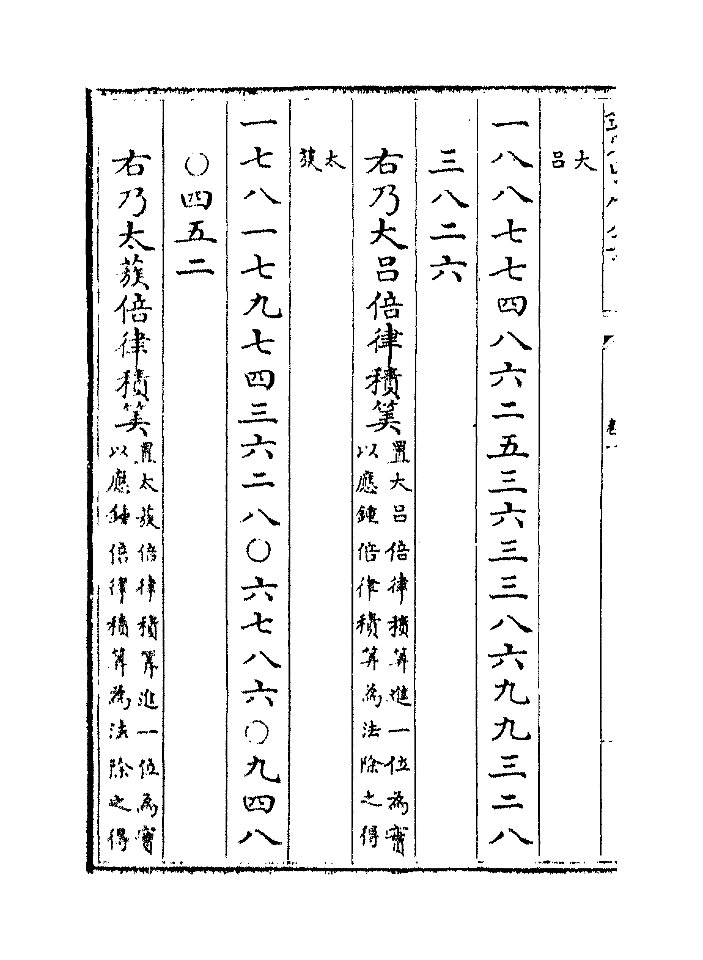 大吕
一八八七七四八六二五三六三三八六九九三二八
三八二六
右乃大吕倍律積筭
置大吕倍律積算進一位為實
以應鍾倍律積算為法除之得
太蔟
一七八一七九七四三六二八〇六七八六〇九四八
〇四五二
右乃太蔟倍律積筭
置太蔟倍律積算進一位為實
以應鍾倍律積算為法除之得